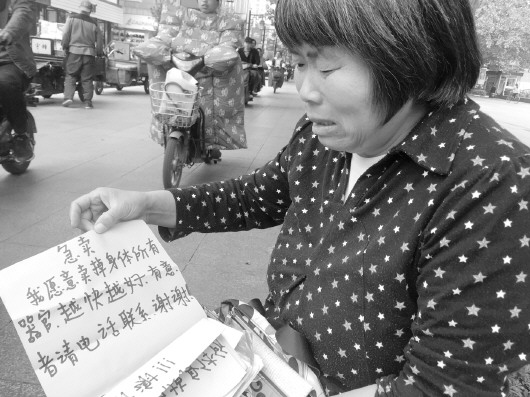 急卖
我愿意卖掉身体所有
器官.越快越好.有意
者请电话联系.谢谢!